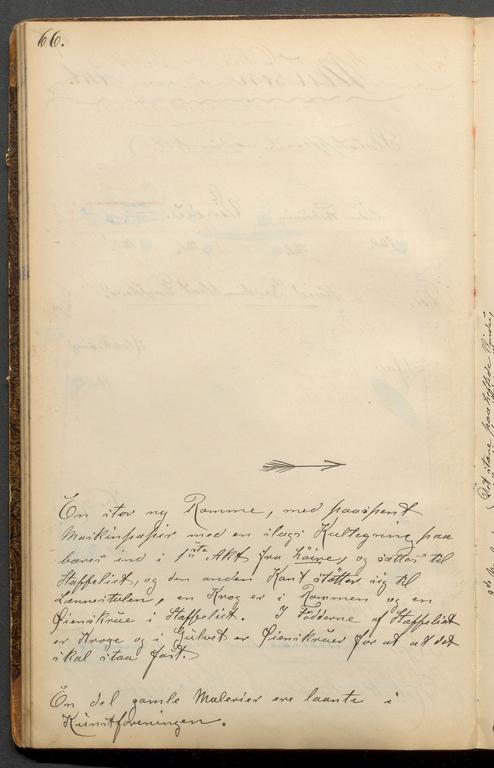 66.
En stor ny Ramme, med paaspent
Maskinpapir med en slags Kultegning paa
bæres ind i 1ste Akt fra höire, og sættes til
Staffeliet, og den anden Kant stötter sig til
Lænestolen, en Krog er i Rammen og en
Øienskrue i Staffeliet. I Födderne af Staffeliet
er Kroge og i Gulvet er Øienskruer for at at det
skal staa fast.
En del gamle Malerier ere laante i
Kunstforeningen.